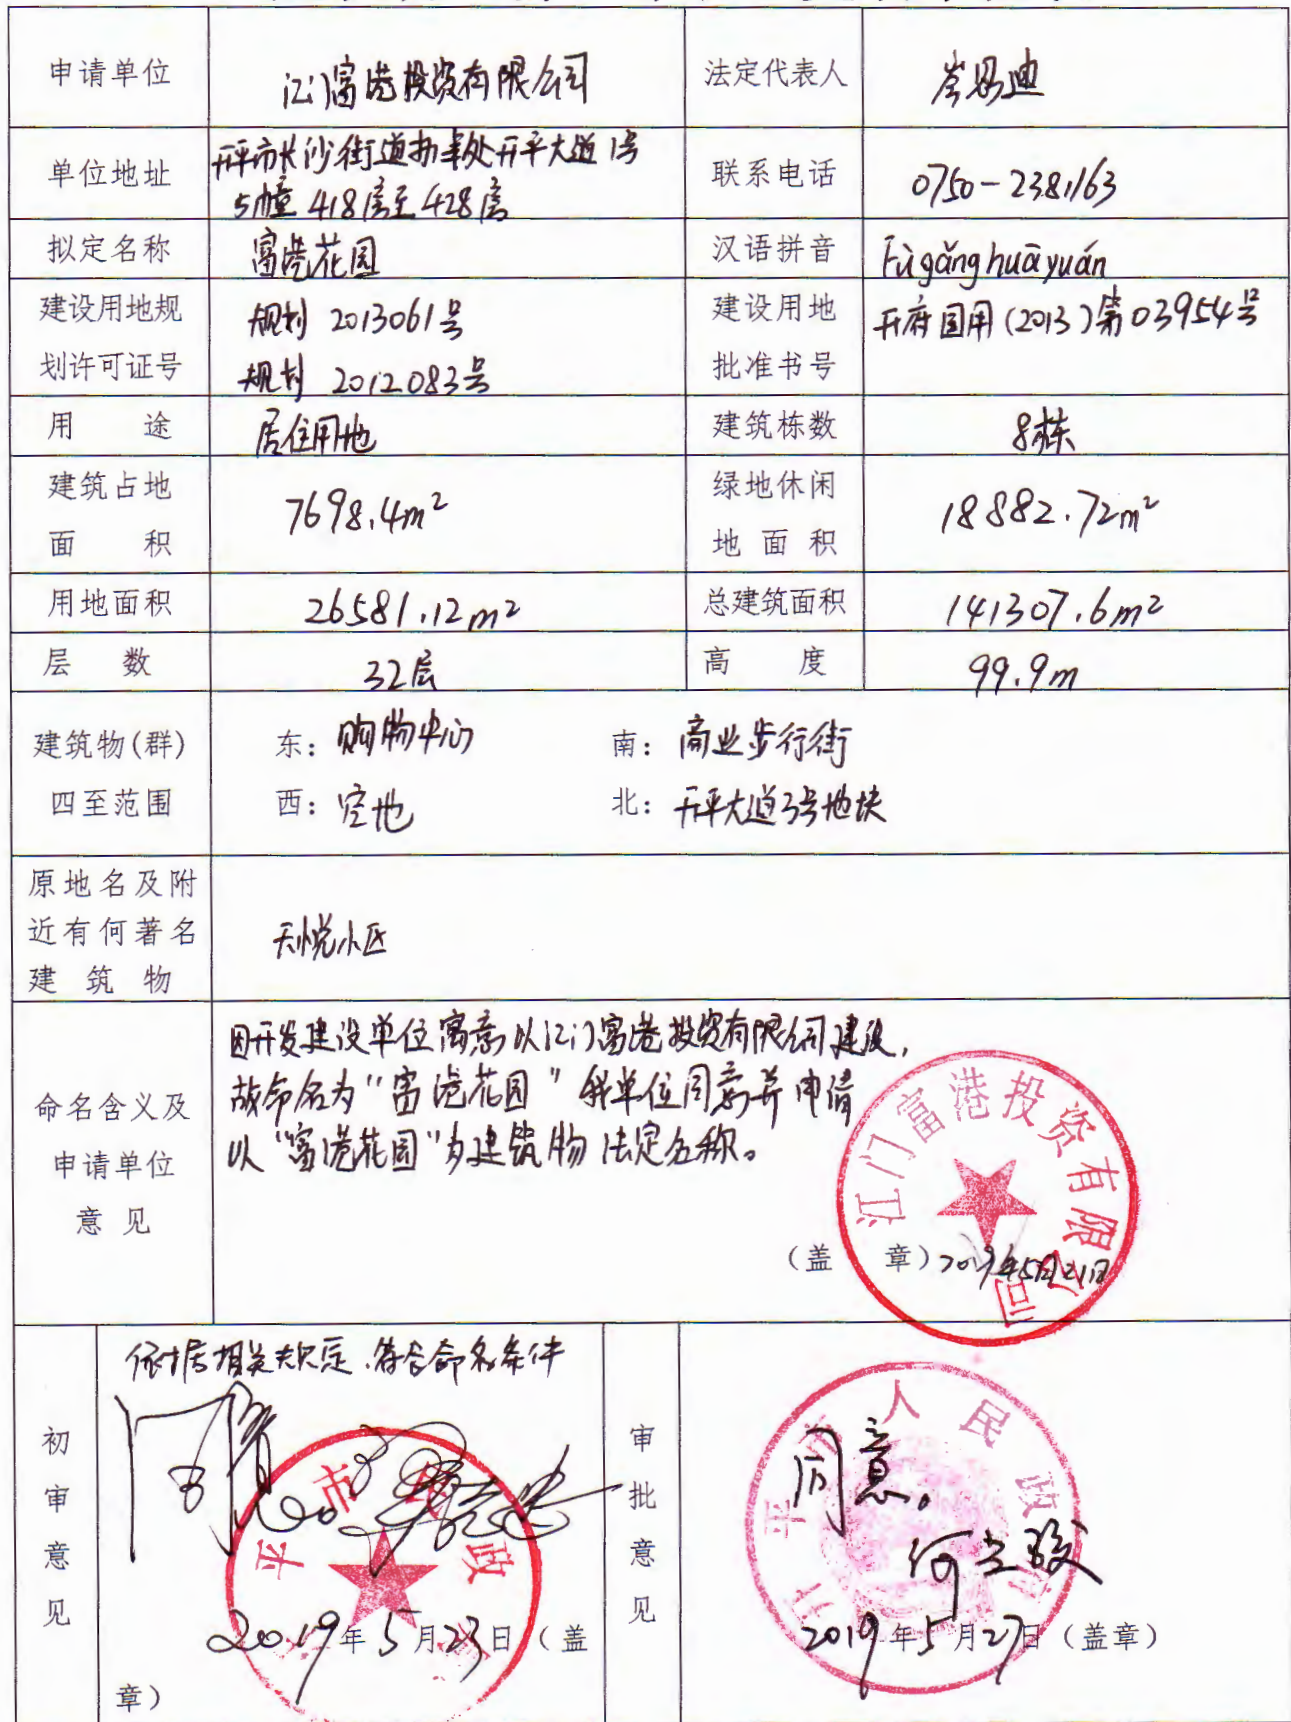 申请单位 江门富港投资有限公司 法定代表人 岑恩迪
单位地址 开平市长沙街道办事处开平大道1号
5幢418房至428房 联系电话 0750-2381163
拟定名称 富港花园 汉语拼音 Fù gǎng huā yuán
建设用地规
划许可证号 规划 2013061号
规划 2012083号
建设用地
批准书号 开府国用(2013)第03954号
用 途 居住用地 建筑栋数 8栋
建筑占地
面 积 7698.4m²
绿地休闲
地面积 18882.72m²
用地面积 26581.12m² 总建筑面积 141307.6m²
层 数 32层 高 度 99.9m
建筑物(群)
四至范围
东: 购物中心 南: 商业步行街
西: 空地 北: 开平大道3号地块
原地名及附
近有何著名
建筑物
天悦小区
命名含义及
申请单位
意见
因开发建设单位寓意以江门富港投资有限公司建设,
故命名为"富港花园"我单位同意并申请
以"富港花园"为建筑物法定名称。
江门富港投资有限公司
(盖 章) 2019年5月21日
初审意见
依据相关规定,符合命名条件
同意。
平市民政
2019年5月23日(盖
章)
审批意见
开平市人民政府
同意。
2019年5月27日(盖章)